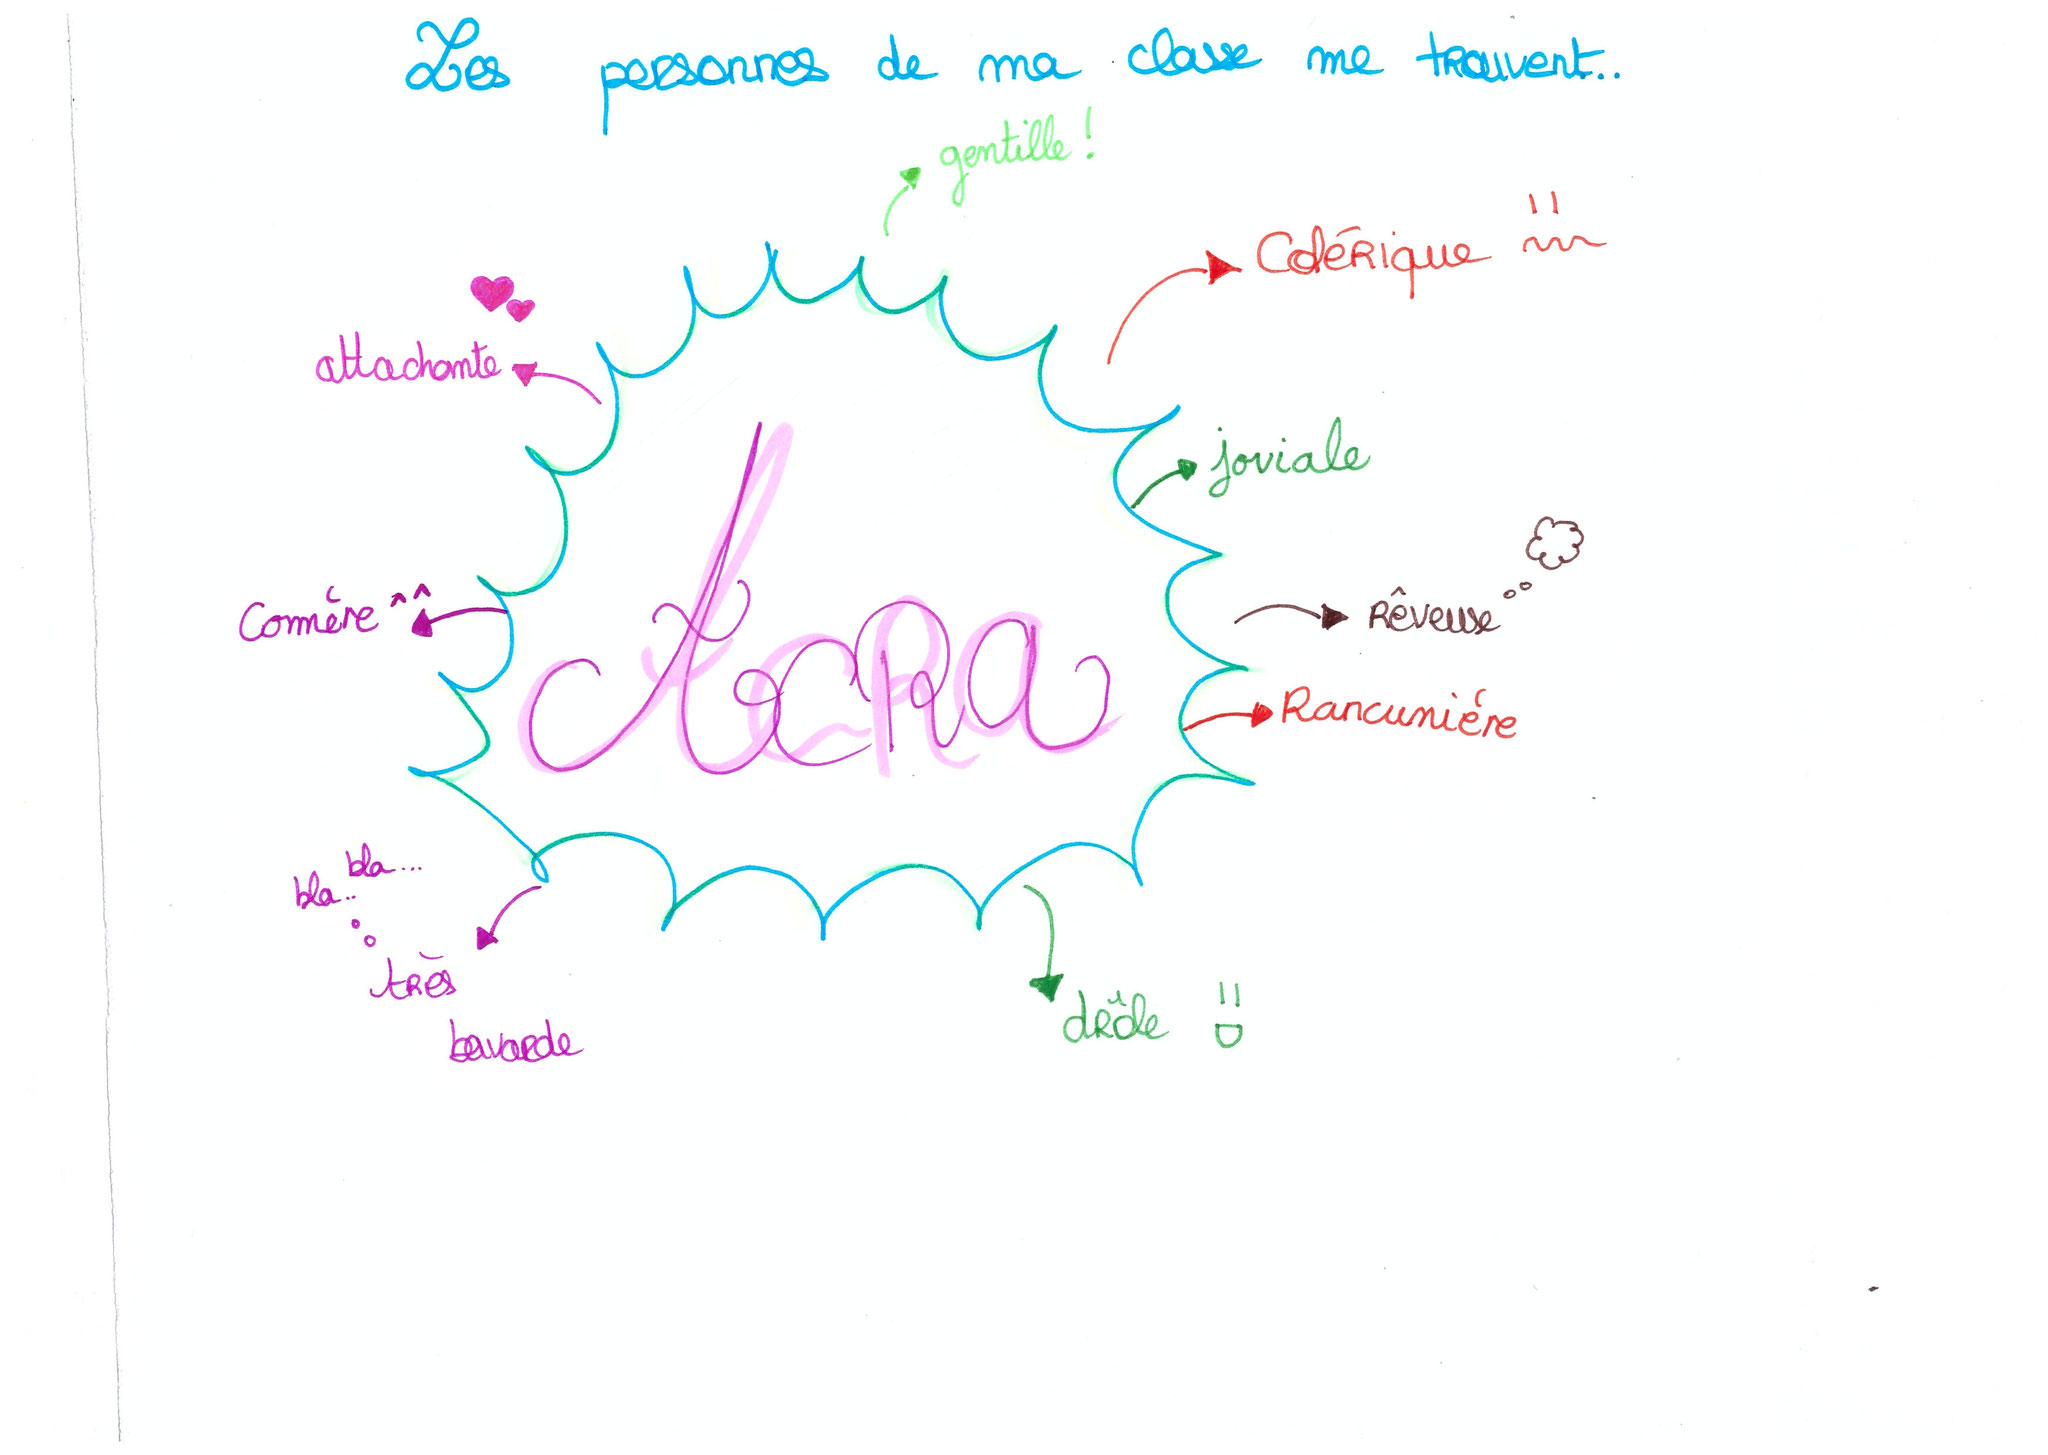 Les personnes de ma classe me trouvent..
gentille !
Colérique
attachante
joviale
Commère ^^
Rêveuse
Acra
Rancuniére
bla.. bla...
très
bavarde
drôle